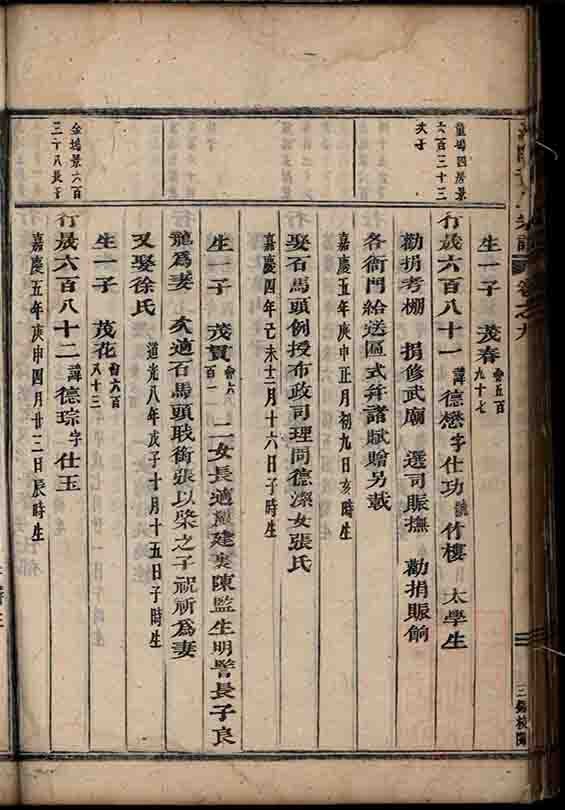 卷之九
三錫校閱
生一子 茂春 會五百九十七
龍塢四居景六百三十三次子
行晟六百八十一 諱德懋字仕功 號竹樓 太學生
勸捐考棚 捐修武廟 選司賑撫 勸捐賑餉
各衙門給送匾式弁諸賦贈另載
嘉慶五年庚申正月初九日亥時生
娶石馬頭例授布政司理問德潔女張氏
嘉慶四年己未十二月十六日子時生
生一子 茂賢 會六百一 二女長適 建 陳監生明譽長子良
龍為妻 次適石馬頭職銜張以榮之子祝祈為妻
又娶徐氏 道光八年戊子十月十五日子時生
生一子 茂花 會六百八十三
金塢景六百三十八長子
行晟六百八十二 諱德琮字仕玉
嘉慶五年庚申四月廿三日辰時生